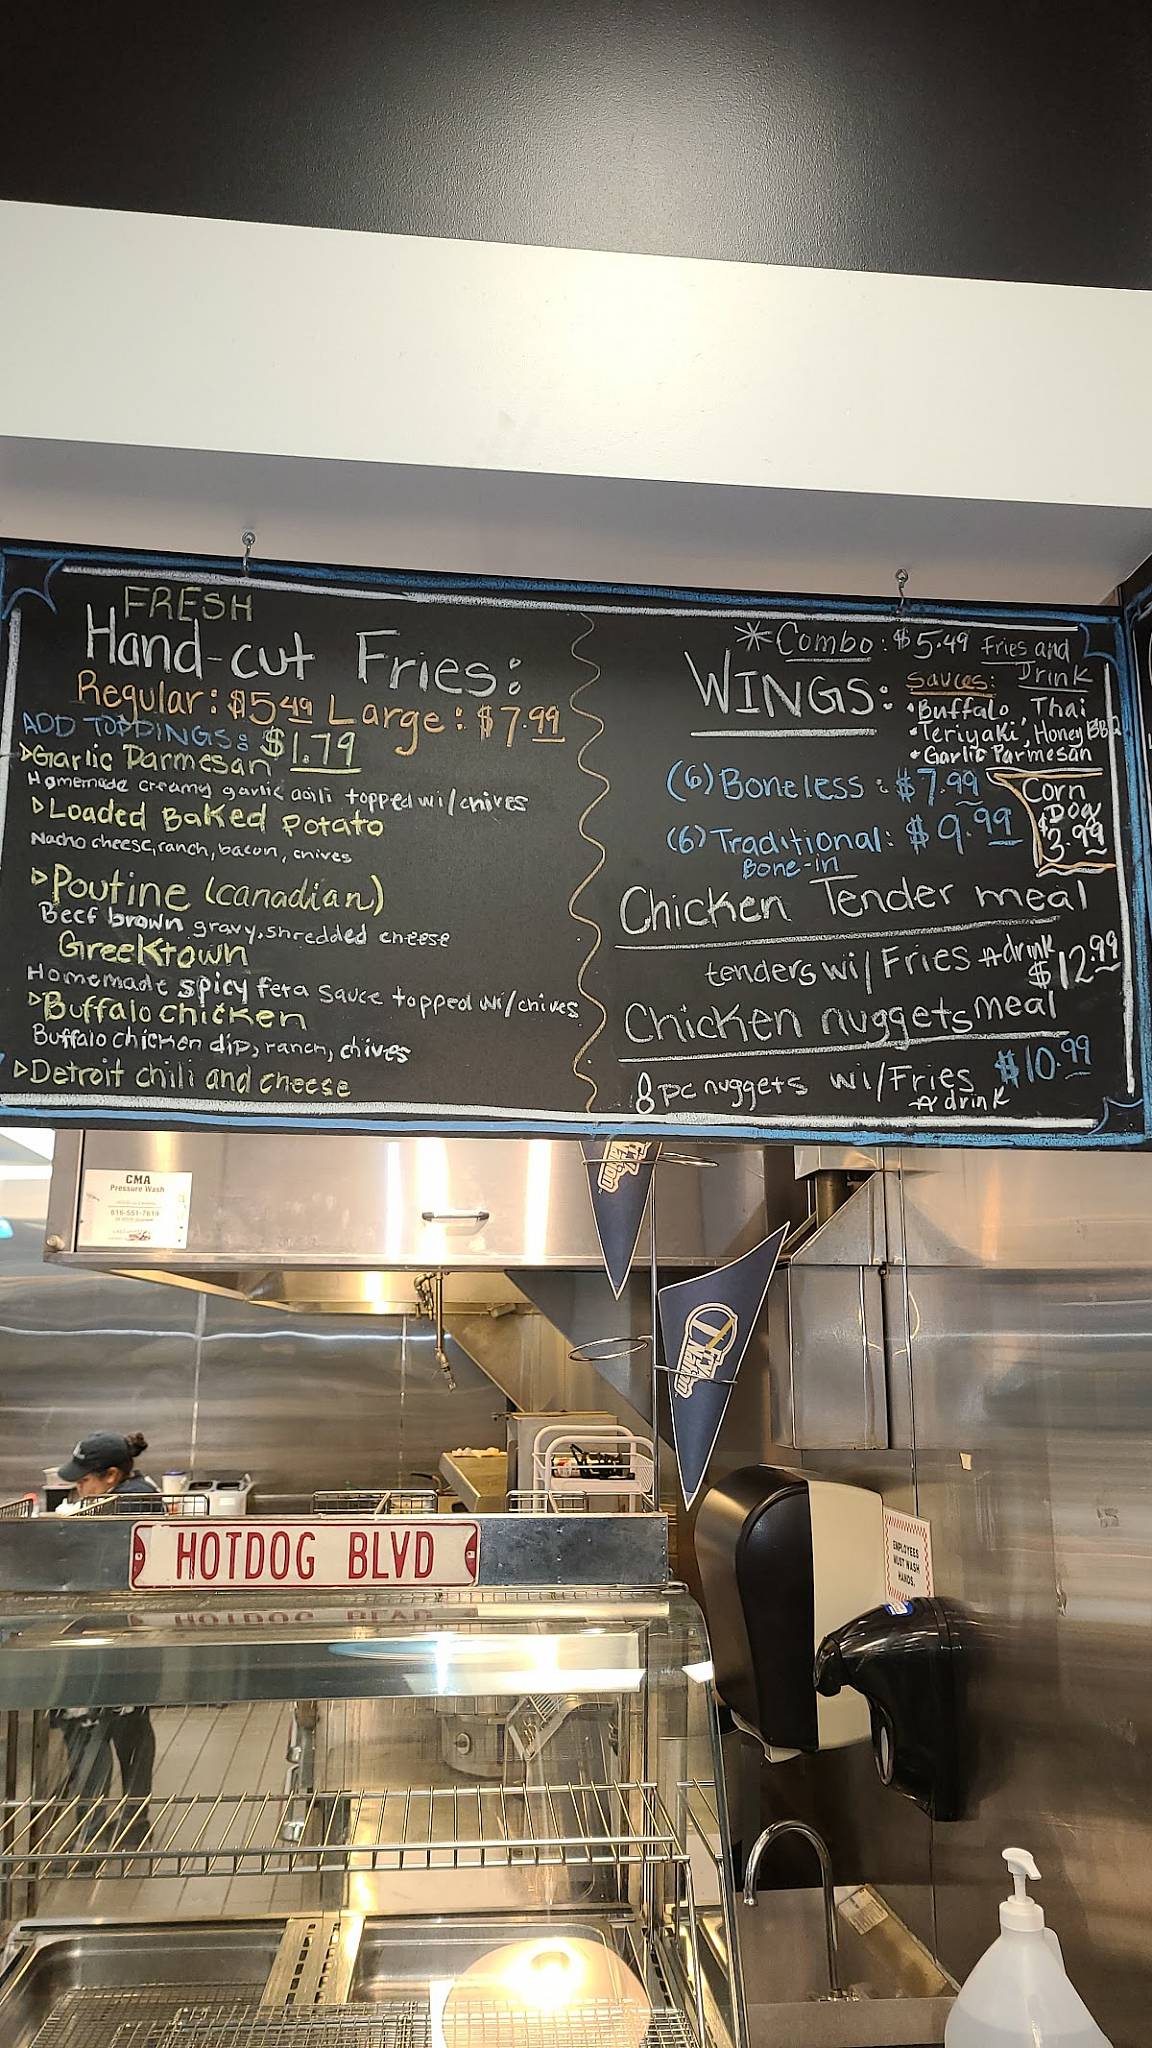 FRESH
Hand-cut Fries:
Regular: $5.49 Large: $7.99
ADD TOPPINGS: $1.79
Garlic Parmesan
Homemade creamy garlic aoili topped wi/chives
Loaded Baked Potato
Nacho cheese, ranch, bacon, chives
Poutine (canadian)
Beef brown gravy, shredded cheese
Greektown
Homemade spicy feta sauce topped wi/chives
Buffalo chicken
Buffalo chicken dip, ranch, chives
Detroit chili and cheese
*Combo: $5.49 Fries and
Drink
WINGS:
Sauces:
•Buffalo, Thai
•Teriyaki, Honey BBQ
•Garlic Parmesan
(6) Boneless: $7.99
(6) Traditional: $9.99
Bone-in
Corn
Dog
$3.99
Chicken Tender meal
tenders wi/Fries + drink
$12.99
Chicken nuggets meal
8 pc nuggets wi/Fries $10.99
+ drink
CMA
Pressure Wash
616-551-7619
Nation
Fry
Nation
HOTDOG BLVD
EMPLOYEES
MUST WASH
HANDS.